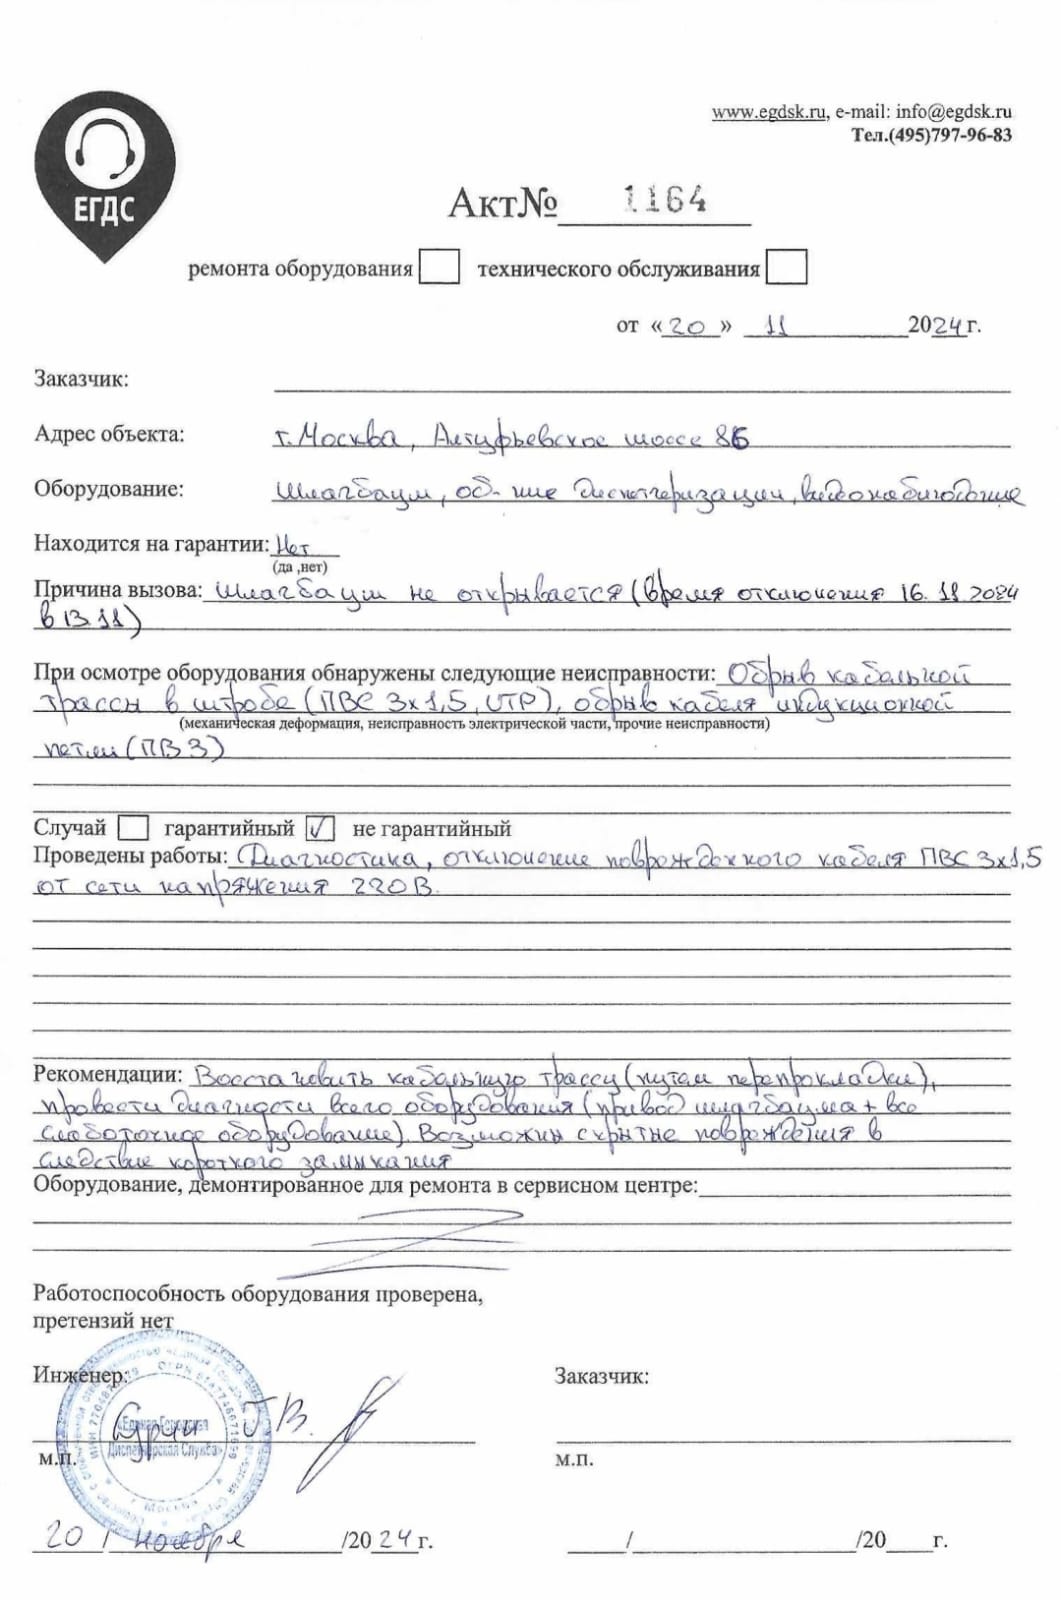 www.egdsk.ru, e-mail: info@egdsk.ru
Тел.(495)797-96-83
ЕГДС
Акт№ 1164
ремонта оборудования технического обслуживания
от «20» 11 2024г.
Заказчик:
Адрес объекта: г. Москва, Алтуфьевское шоссе 86
Оборудование: Шлагбаум, об-ние диспетчеризации, видеонаблюдение
Находится на гарантии: Нет
(да ,нет)
Причина вызова: Шлагбаум не открывается (время отключения 16.11.2024
в 13.11)
При осмотре оборудования обнаружены следующие неисправности: Обрыв кабельной
трассы в штробе (ПВС 3х1,5, UTP), обрыв кабеля индукционной
(механическая деформация, неисправность электрической части, прочие неисправности)
петли (ПВ 3)
Случай гарантийный ✓ не гарантийный
Проведены работы: Диагностика, отключение поврежденного кабеля ПВС 3х1,5
от сети напряжения 220В.
Рекомендации: Восстановить кабельную трассу (путем перепрокладки),
провести диагности всего оборудования (привод шлагбаума + все
слаботочное оборудование). Возможны скрытые повреждения в
следствие короткого замыкания
Оборудование, демонтированное для ремонта в сервисном центре:
Работоспособность оборудования проверена,
претензий нет
Инженер: Заказчик:
Г.В.
«Единая Городская
Диспетчерская Служба»
м.п. м.п.
г. Москва
20 / ноября /2024г. / /20 г.